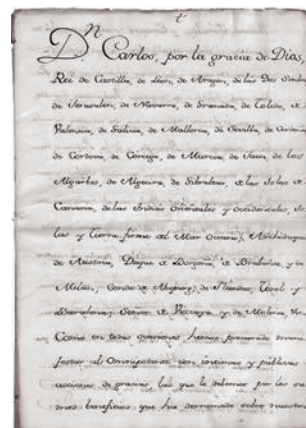 Dn Carlos, por la gracia de Dios,
Rei de Castilla, de Leon, de Aragon, de las Dos Sicilias
de Jerusalen, de Navarra, de Granada, de Toledo, de
Valencia, de Galicia, de Mallorca, de Sevilla, de Cerdeña
de Cordova, de Corcega, de Murcia, de Jaen, de los
Algarbes, de Algecira, de Gibraltar, de las Islas de
Canaria, de las Indias Orientales y occidentales, Is
las y Tierra firme del Mar Oceano, Archiduque
de Austria, Duque de Borgoña, de Brabante, y de
Milan, Conde de Abspurg, de Flandes, Tirol y
Barcelona, Señor de Vizcaya y de Molina
Como en todas ocasiones hemos procurado mani
festar al Omnipotente con intimas y públicas
acciones de gracias las que le debemos por los nu
beneficios que ha derramado sobre nuestra